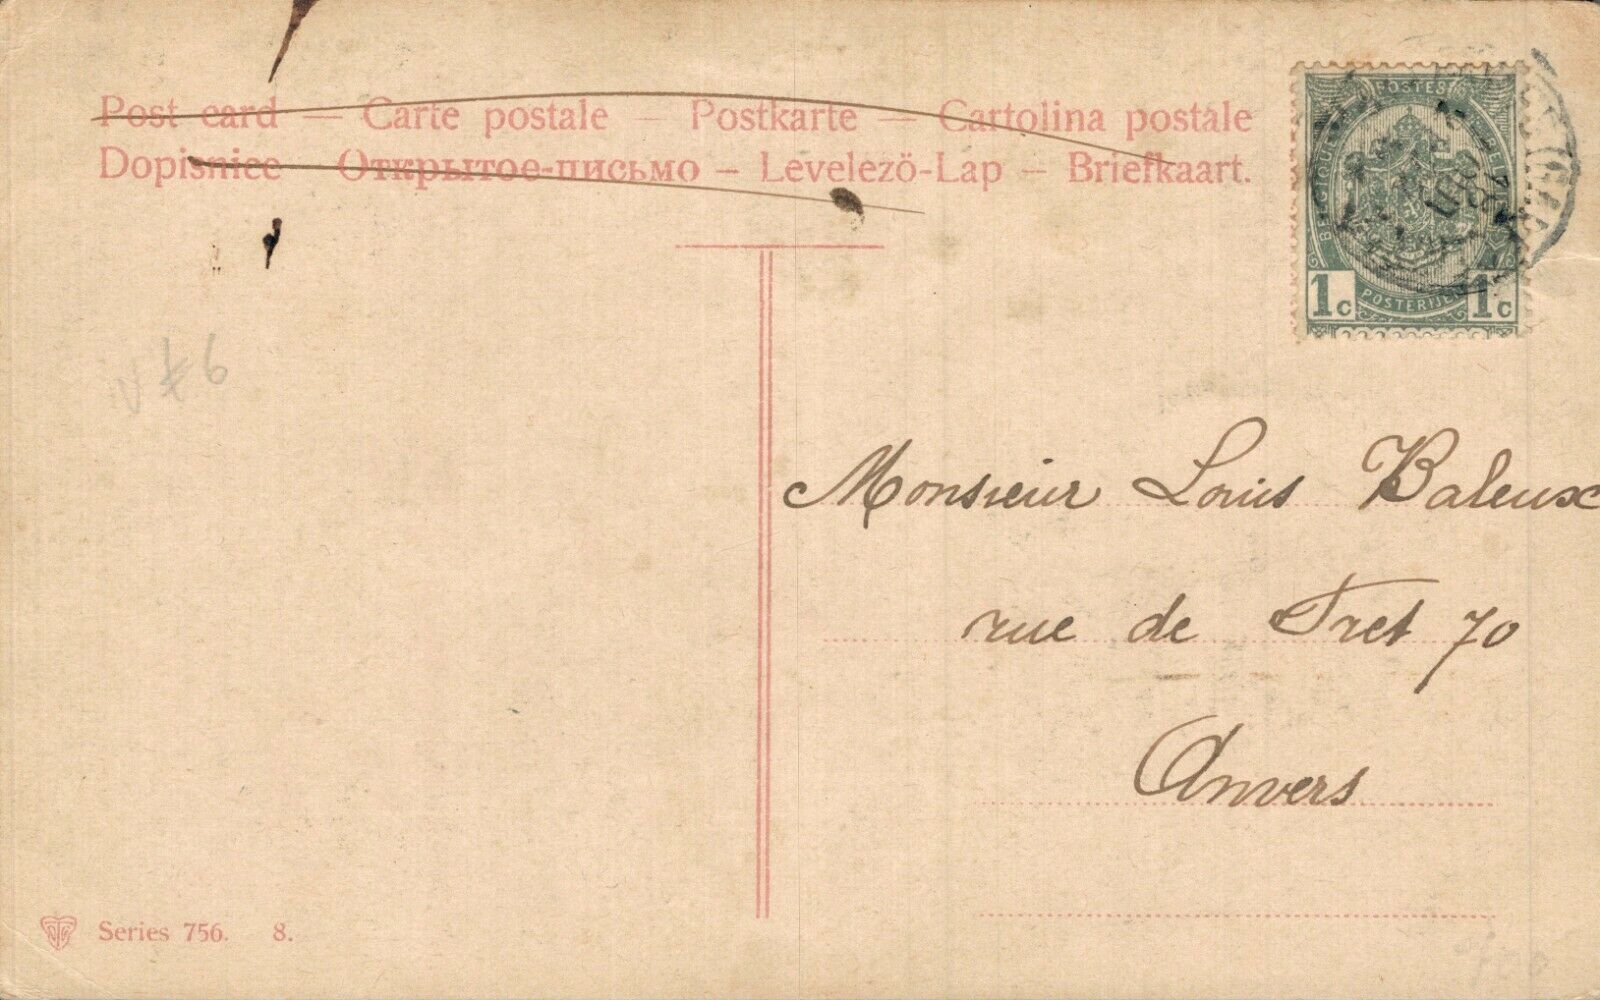 Post card — Carte postale — Postkarte — Cartolina postale
Dopisnice Открытое-письмо — Levelezö-Lap — Briefkaart.
POSTES
BELGIQUE
BELGIË
POSTERIJEN
1c 1c
Monsieur Louis Baleux
rue de Tret 70
Anvers
Series 756. 8.